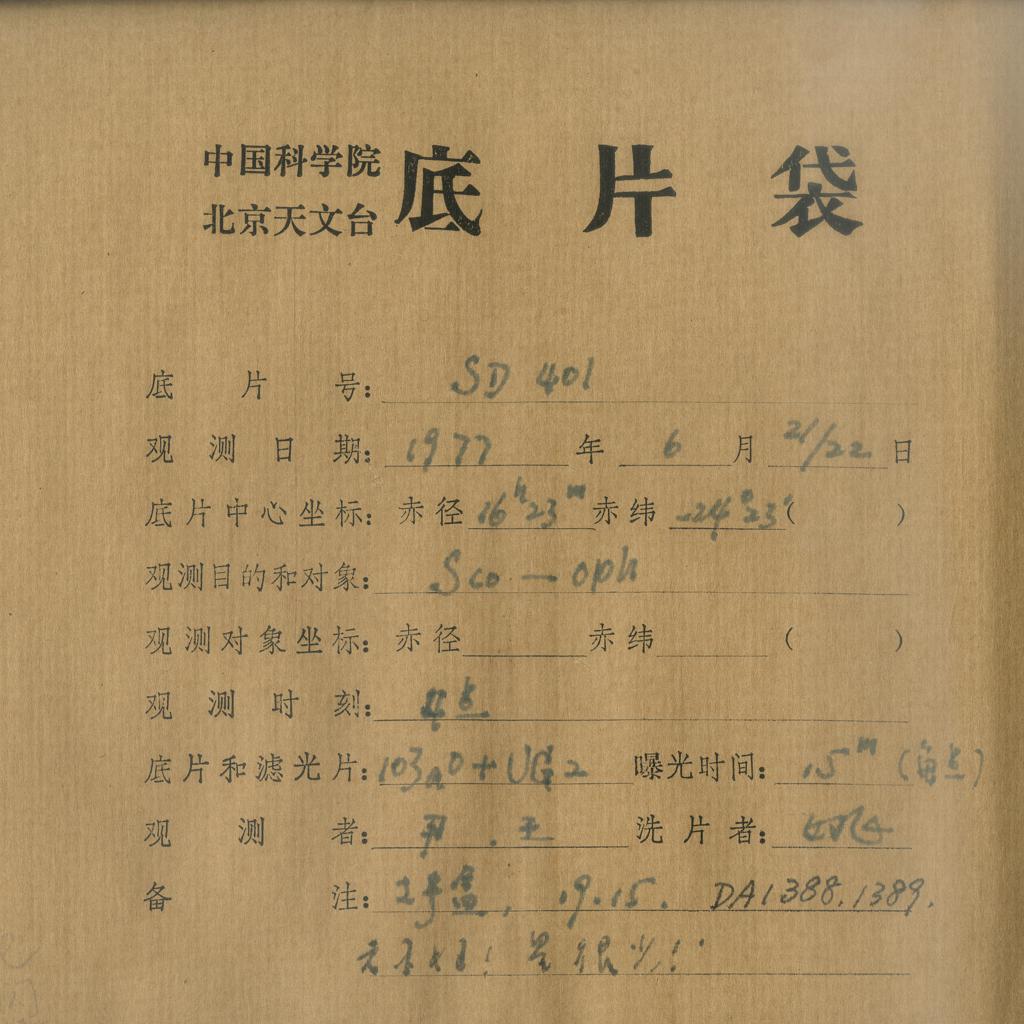 中国科学院
北京天文台
底片袋
底片号: SD 401
观测日期: 1977年 6月 21/22日
底片中心坐标: 赤径 16h23m 赤纬 -24°23′( )
观测目的和对象: Sco — oph
观测对象坐标: 赤径 赤纬 ( )
观测时刻:
底片和滤光片: 103aO + UG2 曝光时间: 15m
观测者: 王 洗片者:
备注: 2号盒, 19.15. DA1388.1389.
星很少!